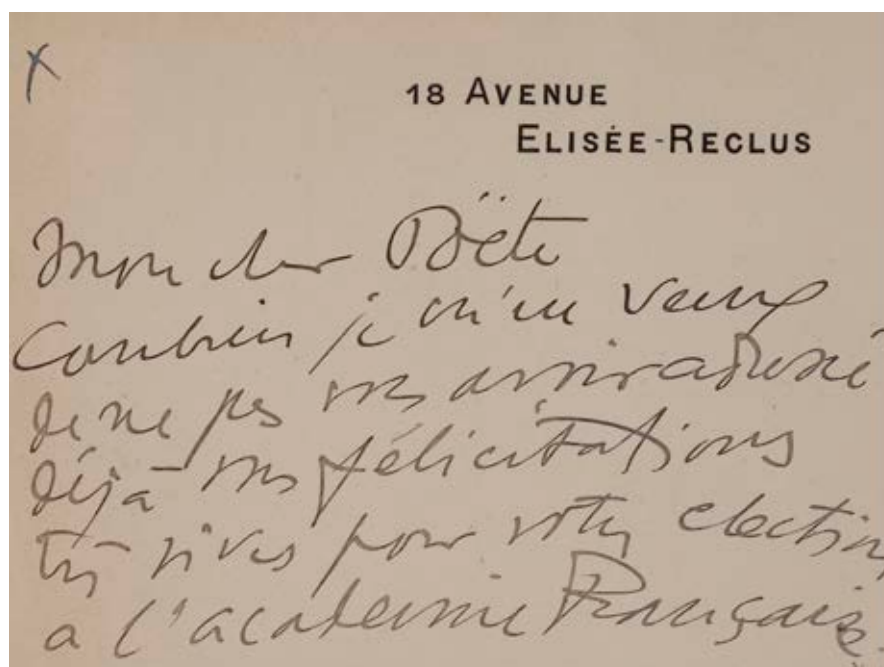 X
18 AVENUE
ELISÉE-RECLUS
Mon cher Poëte
Combien je m'en veux
de ne pas vous avoir adressé
déjà mes félicitations
très vives pour votre election
a l'academie Française.